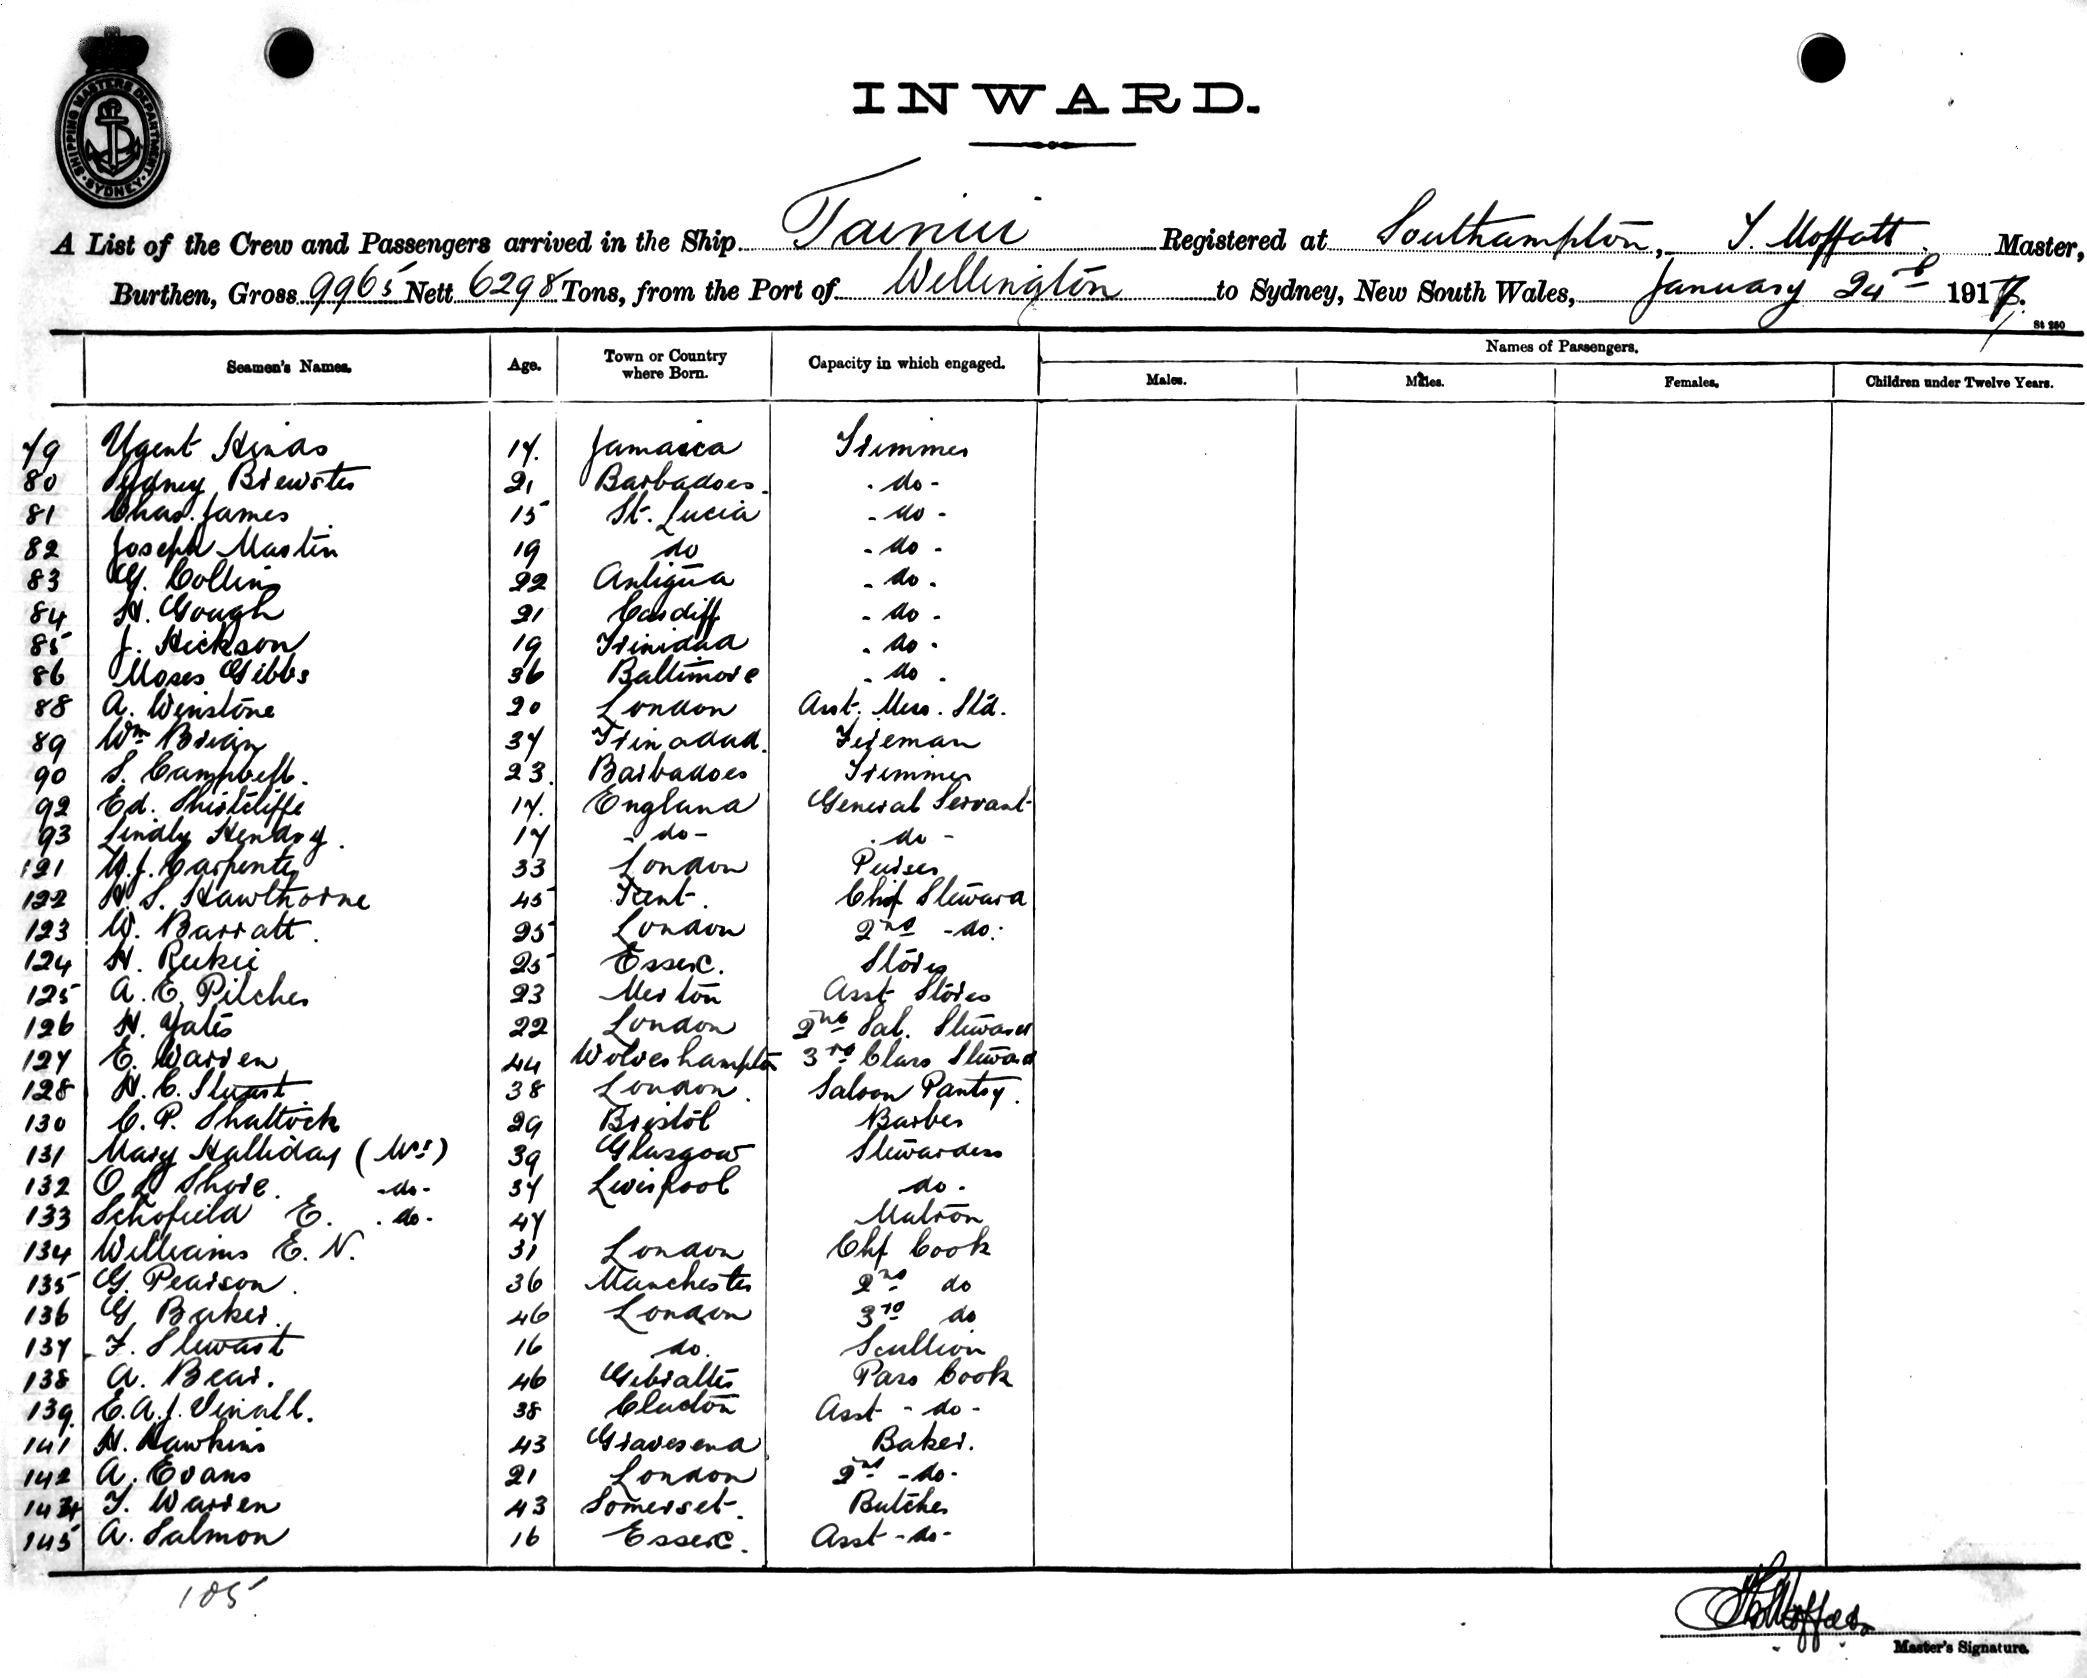 SHIPPING MASTERS DEPARTMENT SYDNEY
INWARD.
A List of the Crew and Passengers arrived in the Ship Tainui Registered at Southampton, Moffatt Master,
Burthen, Gross 9965 Nett 6298 Tons, from the Port of Wellington to Sydney, New South Wales, January 24th 1917.
St 250
Seamen's Names. Age. Town or Country where Born. Capacity in which engaged. Names of Passengers.
Males. Males. Females. Children under Twelve Years.
79 Hinds 17. Jamaica Trimmer
80 Sydney Brewster 21 Barbadoes. -do-
81 Chas. James 15 St. Lucia -do-
82 Joseph Martin 19 do -do-
83 G. Collins 22 Antigua -do-
84 H. Gough 21 Cardiff -do-
85 J. Hickson 19 Trinidad -do-
86 Moses Gibbs 36 Baltimore -do-
88 A. Winstone 20 London Asst. Mess. Std.
89 Wm Brian 37 Trinadad. Fireman
90 S. Campbell. 23. Barbadoes Trimmer
92 Ed. Shirtcliffe 17. England General Servant
93 Lindly Hendry. 17 -do- -do-
121 W. J. Carpenter 33 London Purser
122 H. S. Hawthorne 45 Kent. Chief Steward
123 W. Barratt. 25 London 2nd -do-
124 H. 25 Essex. Stores
125 A. E. Pilcher 23 Merton Asst Stores
126 H. Yates 22 London 2nd Sal. Steward
127 E. Warren 44 Wolverhampton 3rd Class Steward
128 H. C. Stewart 38 London. Saloon Pantry.
130 C. P. Shattock 29 Bristol Barber
131 Mary Halliday (Mrs) 39 Glasgow Stewardess
132 O L Shore. -do- 37 Liverpool do.
133 Schofield E. -do- 47 Matron
134 Williams E. N. 31 London Chf Cook
135 G. Pearson. 36 Manchester 2nd do
136 G. Baker. 46 London 3rd do
137 F. Stewart 16 do. Scullion
138 A. Bear. 46 Gibralter Pass Cook
139. E. A. J. Vinall. 38 Clacton Asst -do-
141 H. Hawkins 43 Gravesend Baker.
142 A. Evans 21 London 2nd -do-
144 T. Warren 43 Somerset. Butcher
145 A. Salmon 16 Essex. Asst -do-
185
Master's Signature.